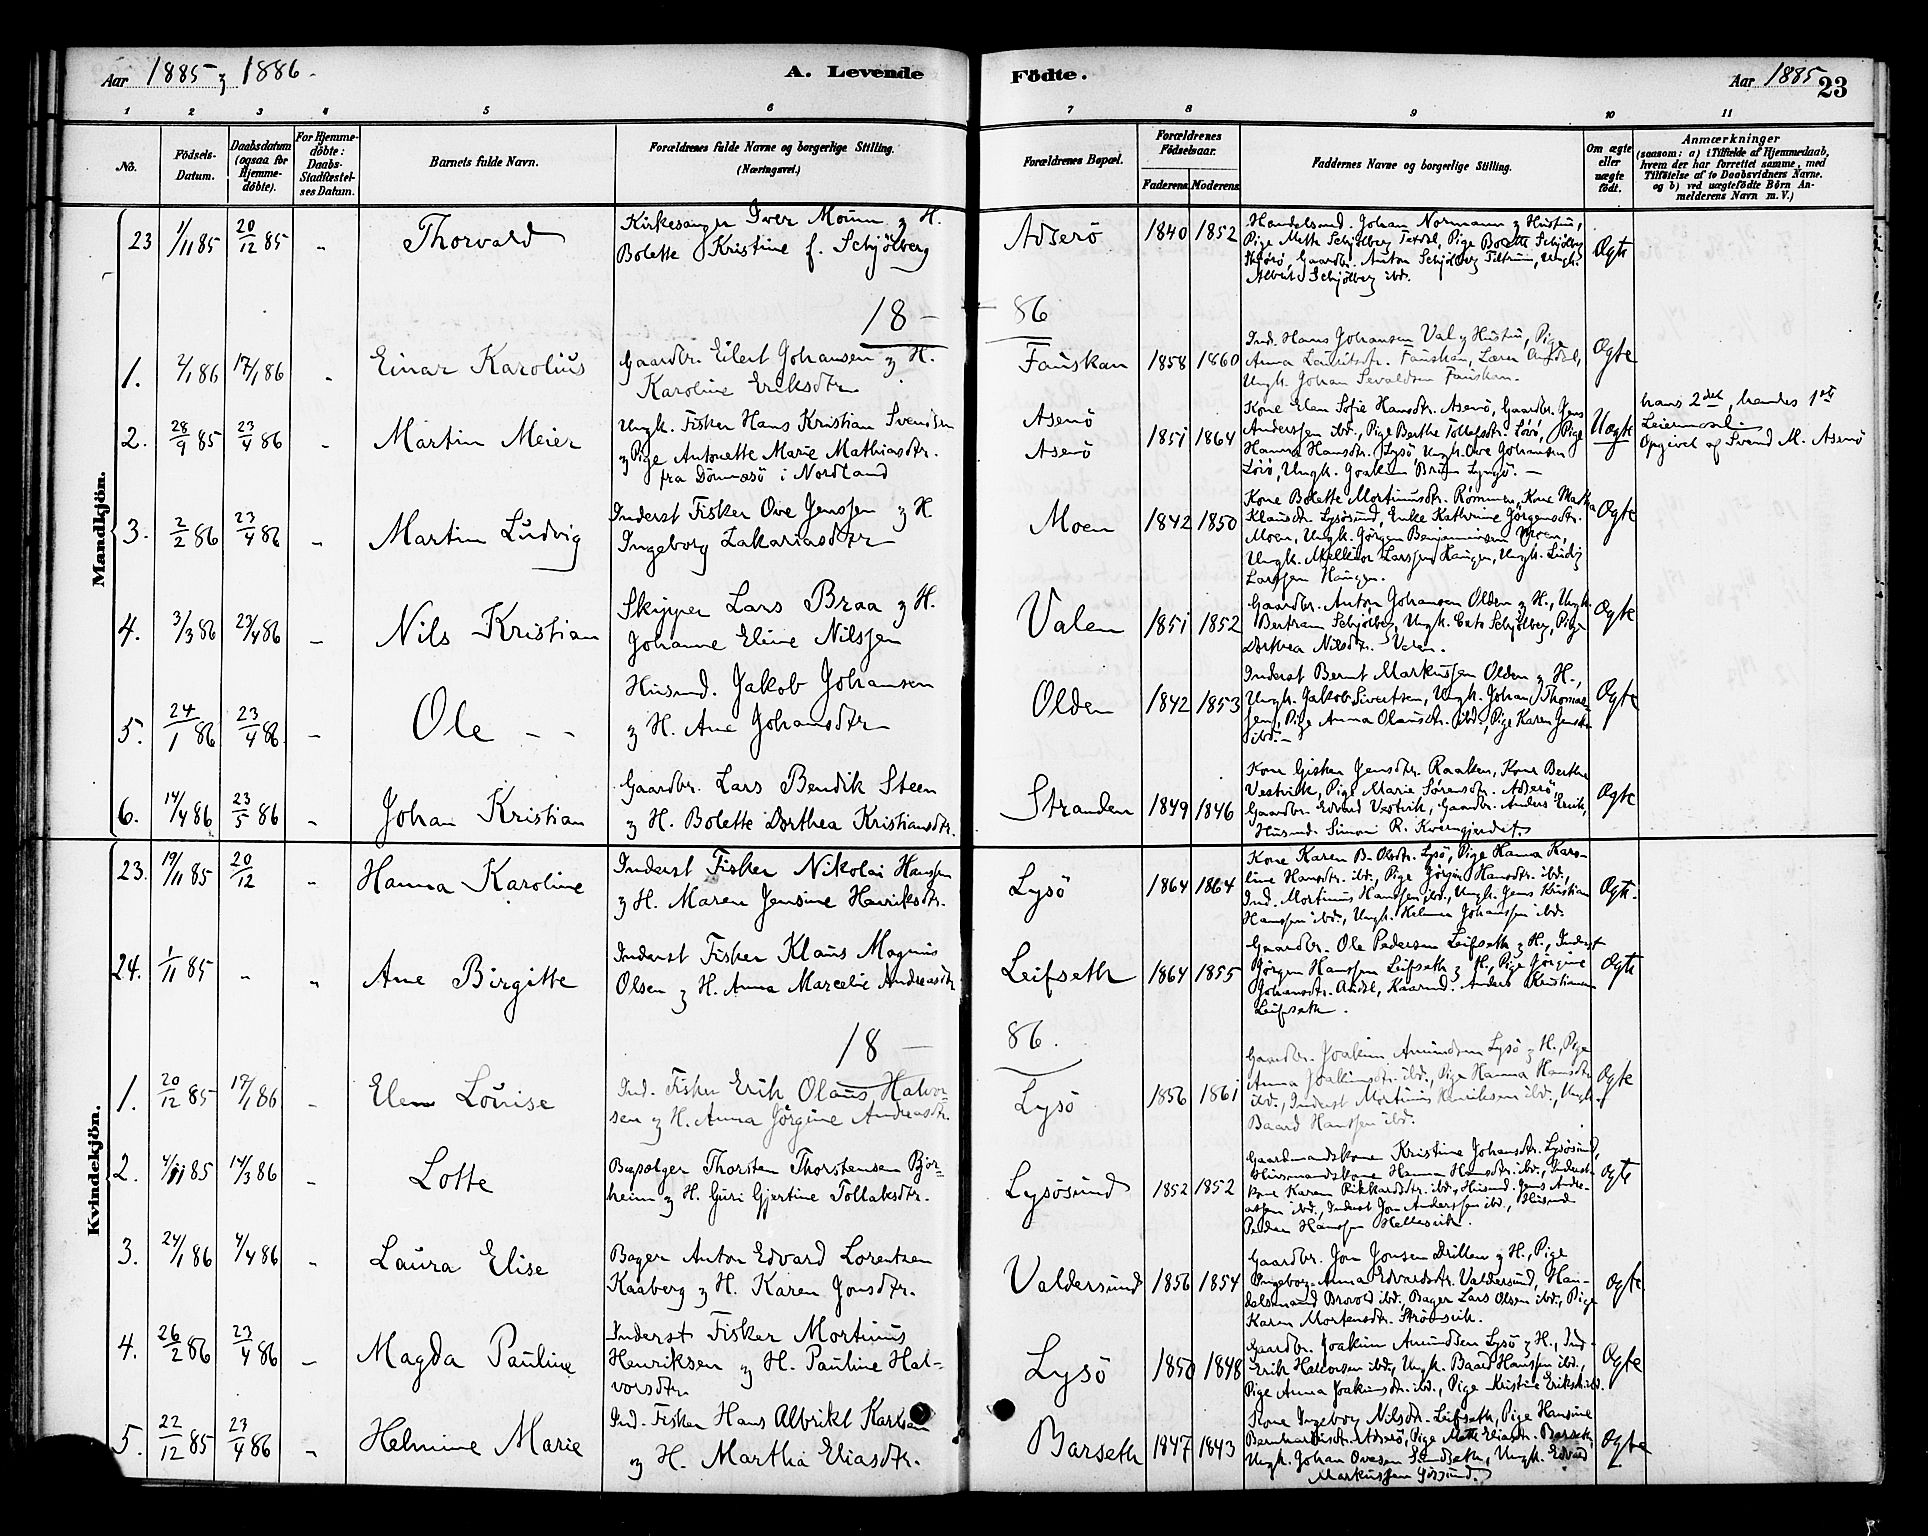 Aar 1885 & 1886.
A. Levende Födte.
Aar 1885
23
1 2 3 4 5 6 7 8 9 10 11
No.
Födsels-Datum.
Daabsdatum (ogsaa for Hjemme-döbte).
For Hjemme-döbte: Daabs-Stadfæstel-ses Datum.
Barnets fulde Navn.
Forældrenes fulde Navne og borgerlige Stilling.
(Næringsvei.)
Forældrenes Bopæl.
Forældrenes Födselsaar.
Faderens. Moderens.
Faddernes Navne og borgerlige Stilling.
Om ægte eller uægte födt.
Anmærkninger
(saasom: a) i Tilfælde af Hjemmedaab, hvem der har forrettet samme, med Tilföielse af to Daabsvidners Navne. og b) ved uægtefödte Börn An-melderens Navn m. V.)
Mandkjön.
23 1/11 85 20/12 85 " Thorvald
Kirkesanger Iver Moum & H.
Bolette Kristine f. Schjölberg
Adserö 1840 1852
Handelsmd. Johan Normann & Hustru,
Pige Mette Schjölberg Pige Bolette Schjölberg
Gaardbr. Anton Schjölberg Ungk.
Schjölberg ibd.
Ægte
18 – 86
1. 2/1 86 17/1 86 " Einar Karolius
Gaardbr. Eilert Johansen & H.
Karoline Eriksdtr.
Fauskan 1858 1860
Ind. Hans Johansen Val & Hustru, Pige
Anna Fauskan, Lærer
Ungk. Johan Sevaldsen Fauskan.
Ægte
2. 28/9 85 23/4 86 " Martin Meier
Ungk. Fisker Hans Kristian Svendsen
& Pige Antonette Marie Mathiasdtr.
fra Dönnæsö i Nordland
Aserö
Aserö
1851 1864
Kone Elen Sofie Hansdtr. Aserö, Gaardbr. Jens
Anderssen ibd., Pige Berthe Tollefsdtr. Pige
Hanna Hansdtr. Lysö, Ungk. Ove Johansen
Ungk. Joakim
Uægte
hans 2det, hendes 1ste
Leiermaal.
Opgivet af Svend M. Aserö
3. 2/2 86 23/4 86 " Martin Ludvig
Inderst Fisker Ove Jenssen & H.
Ingeborg Zakariasdtr.
Moen 1842 1850
Kone Bolette Mortinusdtr. Rømmen, Kone Martha
Klausdtr. Lysösund, Enke Kathrine Jörgensdtr.
Moen, Ungk. Jörgen Benjaminsen Moen,
Ungk. Mellkior Larssen Haugen, Ungk. Ludvig
Larssen Haugen.
Ægte
4. 3/3 86 23/4 86 " Nils Kristian
Skipper Lars Braa & H.
Johanne Eline Nilssen
Valen 1851 1852
Gaardbr. Anton Johansen Olden & H., Ungk.
Bertram Schjölberg, Ungk. Schjölberg, Pige
Dorthea Nilsdtr. Valen.
Ægte
5. 24/1 86 23/4 86 " Ole – –
Husmd. Jakob Johansen
& H. Ane Johansdtr.
Olden 1842 1853
Inderst Bernt Markussen Olden & H.,
Ungk. Jakob Sivertsen, Ungk. Johan Thomas-
sen, Pige Anna Olausdtr. ibd., Pige Karen Jensdtr.
ibd. –
Ægte
6. 14/4 86 23/5 86 " Johan Kristian
Gaardbr. Lars Bendik Steen
& H. Bolette Dorthea Kristiansdtr.
Stranden 1849 1846
Kone Gisken Jensdtr. Raaken, Kone Berthe
Vestvik, Pige Marie Sörensdtr. Adserö,
Gaardbr. Edvard Vestvik, Gaardbr. Anders
Husmd. Simon R. Kværngjerdet.
Ægte
Kvindekjön.
23. 19/11 85 20/12 " Hanna Karoline
Inderst Fisker Nikolai Hanssen
& H. Maren Jensine Henriksdtr.
Lysö 1864 1864
Kone Karen B. Olsdtr. Lysö, Pige Hanna Karo-
line Hansdtr. ibd., Pige Jörgine Hansdtr. ibd.,
Ind. Mortinus Hanssen ibd., Ungk. Jens Kristian
Hanssen ibd., Ungk. Helmer Johanssen ibd.
Ægte.
24. 1/11 85 " " Ane Birgitte
Inderst Fisker Klaus Magnus
Olsen & H. Anna Marcelie Andreasdtr.
Leifseth 1864 1855
Gaardbr. Ole Pedersen Leifseth & H., Inderst
Jörgen Hanssen Leifseth & H., Pige Jörgine
Johansdtr. Kaarmd. Anders Kristiansen
Leifseth.
Ægte
18 – 86.
1. 20/12 85 17/1 86 " Elen Louise
Ind. Fisker Erik Olaus Halvor-
sen & H. Anna Jörgine Andreasdtr.
Lysö 1856 1861
Gaardbr. Joakim Amundsen Lysö & H., Pige
Anna Joakimsdtr. ibd., Pige Hanna Hansdtr.
ibd., Inderst Mortinus Henriksen ibd., Ungk.
Baard Hanssen ibd.
Ægte
2. 4/11 85 14/3 86 " Lotte
Bogsælger Thorsten Thorstensen Bjor-
heim & H. Guri Gjertine Tollaksdtr.
Lysösund 1852 1852
Gaardmandskone Kristine Johansdtr. Lysösund,
Husmandskone Hanna Hansdtr. ibd., Inderst-
kone Karen Rikkardsdtr. ibd., Husmd. Jens Andre-
assen ibd., Inderst Jon Anderssen ibd., Husmd.
Peder Hanssen Hellesvik.
Ægte
3. 24/1 86 4/4 86 " Laura Elise
Bager Anton Edvard Lorentzen
Kaaberg & H. Karen Jonsdtr.
Valdersund 1856 1854
Gaardbr. Jon Jonsen Drillen & H., Pige
Ingeborg Anna Edvardsdtr. Valdersund, Han-
delsmand Brovold ibd., Bager Lars Olsen ibd., Pige
Karen Mortensdtr. Strömsvik.
Ægte
4. 26/2 86 23/4 86 " Magda Pauline
Inderst Fisker Mortinus
Henriksen & H. Pauline Hal-
vorsdtr.
Lysö 1850 1848
Gaardbr. Joakim Amundsen Lysö & H., Ind.
Erik Halvorsen ibd., Ungk. Baard Hanssen ibd.,
Pige Anna Joakimsdtr. ibd., Pige Kristine Eriksdtr. ibd.
Ægte
5. 22/12 85 23/4 86 " Helmine Marie
Ind. Fisker Hans Albrikt Karlsen
& H. Martha Eliasdtr.
Barseth 1847 1843
Kone Ingeborg Nilsdtr. Leifseth, Pige Hansine
Bernhardsdtr. Adserö, Pige Mette Eliasdtr. Barseth,
Ungk. Johan Ovesen Sundseth, Ungk. Edvard
Markussen
Ægte